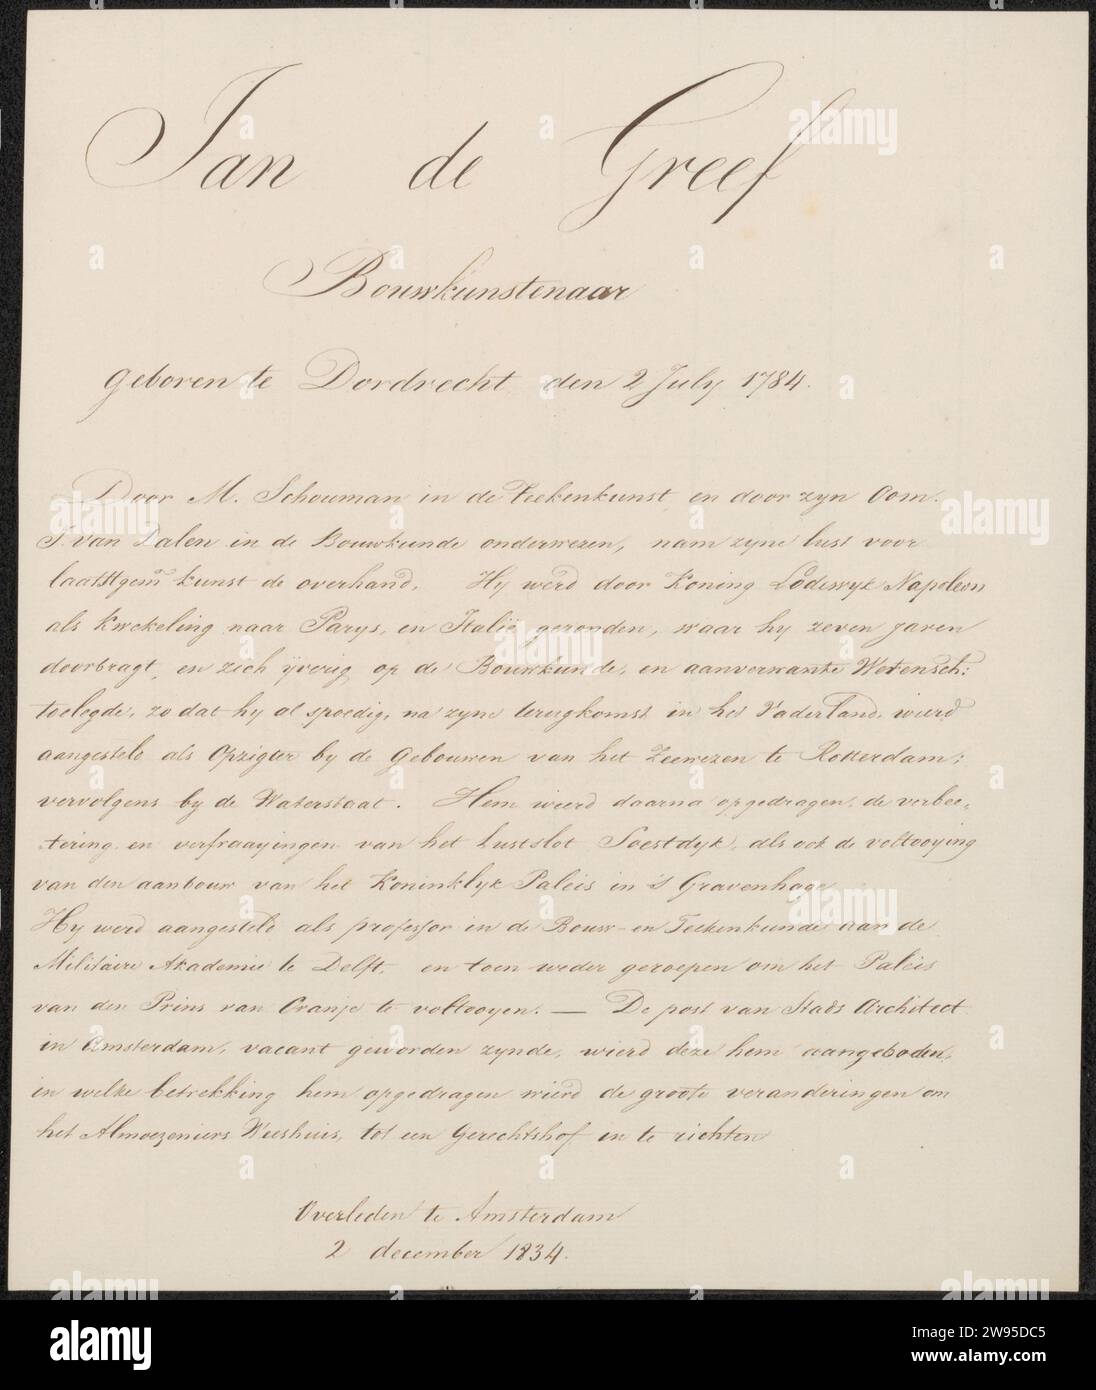 Jan de Greef
Bouwkunstenaar
geboren te Dordrecht den 2 July 1784.
Door M. Schouman in de Teekenkunst en door zyn Oom.
J. van Dalen in de Bouwkunde onderwezen, nam zyne lust voor
laatstgem kunst de overhand. Hy werd door Koning Lodewyk Napoleon
als kwekeling naar Parys, en Italie gezonden, waar hy zeven jaren
doorbragt, en zich yverig op de Bouwkunde, en aanverwante Wetensch:
toelegde, zo dat hy al spoedig, na zyne terugkomst in het Vaderland, wierd
aangesteld als Opzigter by de Gebouwen van het Zeewezen te Rotterdam;
vervolgens by de Waterstaat. Hem wierd daarna opgedragen, de verbee-
tering en verfraayingen van het Lustslot Soestdyk, als ook de voltooying
van den aanbouw van het Koninklyk Paleis in 's Gravenhage
Hy werd aangesteld als professor in de Bouw- en Teekenkunde aan de
Militaire Akademie te Delft, en toen weder geroepen om het Paleis
van den Prins van Oranje te voltooyen. — De post van Stads Architect
in Amsterdam, vacant geworden zynde, wierd deze hem aangeboden,
in welke betrekking hem opgedragen wierd de groote veranderingen om
het Almoezeniers Weeshuis, tot een Gerechtshof in te richten
Overleden te Amsterdam
2 december 1834.
alamy
Image ID: 2W95DC5
www.alamy.com